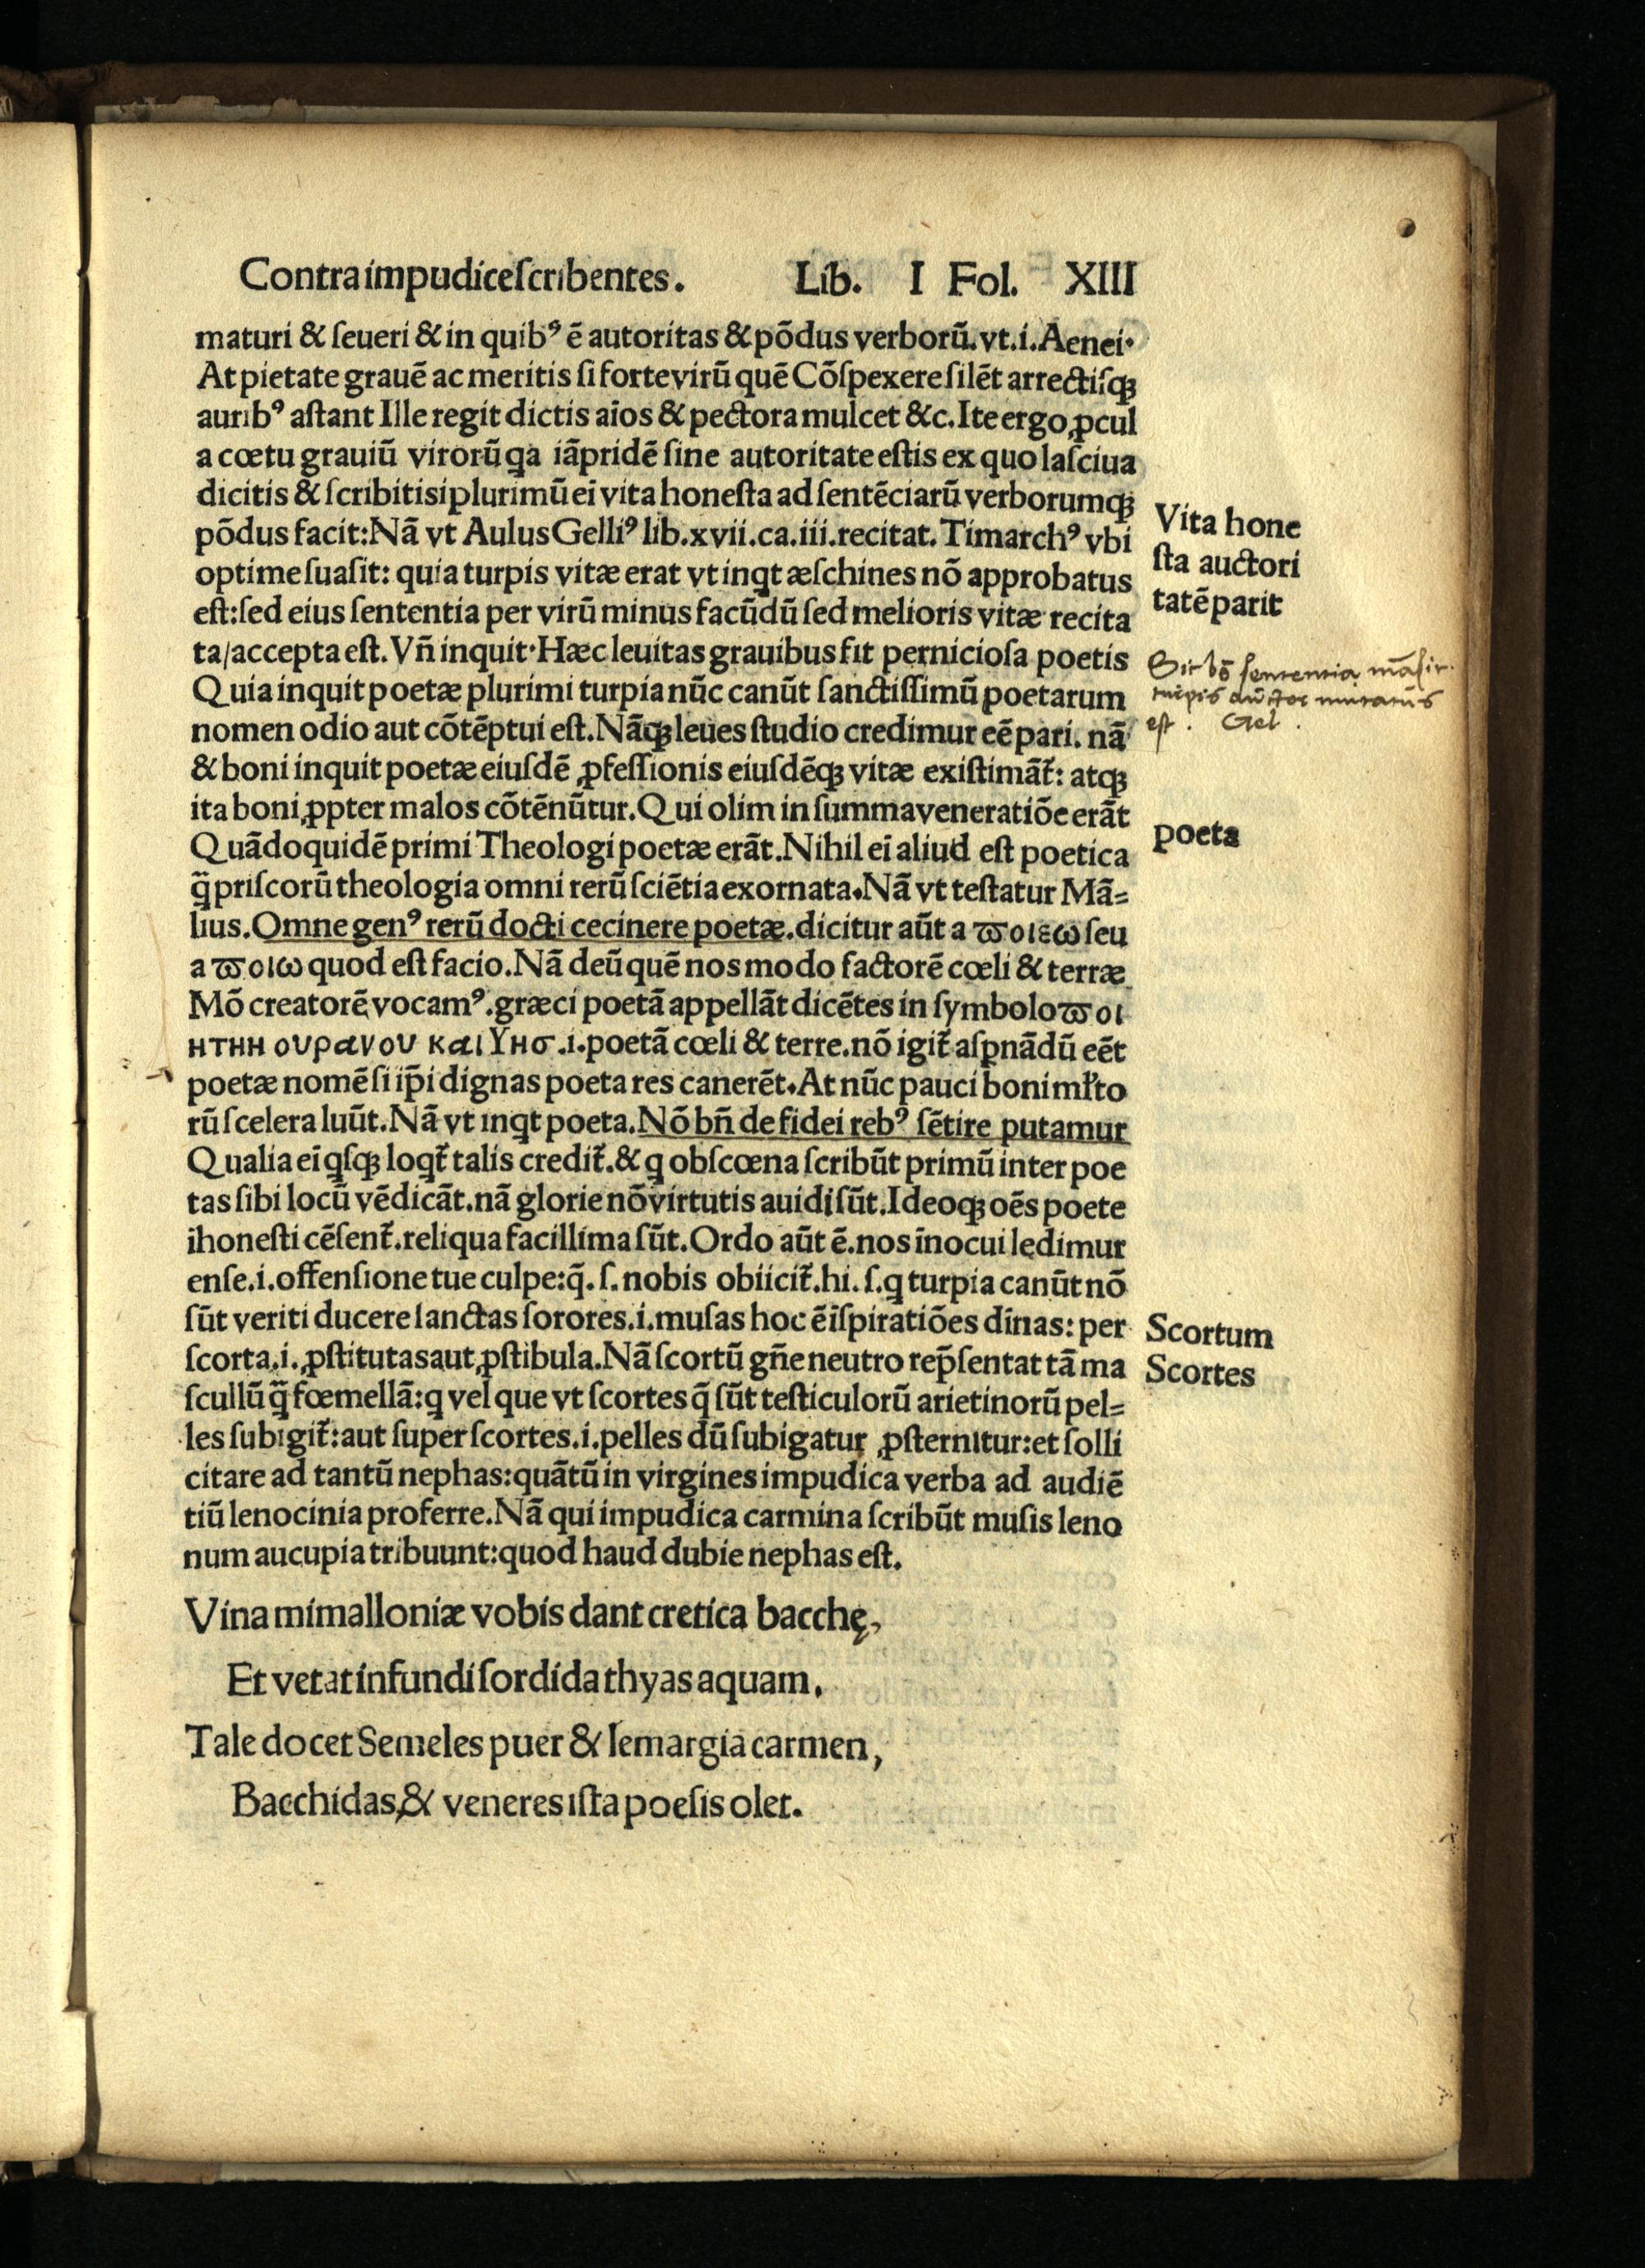 Contra impudice ſcribentes. Lib. I Fol. XIII
maturi & ſeueri & in quibꝰ ē autoritas & põdus verborū. vt. i. Aenei·
At pietate grauē ac meritis ſi forte virū quē Cõſpexere ſilēt arrectiſqꝫ
auribꝰ aſtant Ille regit dictis aīos & pectora mulcet &c. Ite ergo ꝓcul
a cœtu grauiū virorū qa iāpridē ſine autoritate eſtis ex quo laſciua
dicitis & ſcribitis iplurimū eī vita honeſta ad ſentēciarū verborumqꝫ
põdus facit: Nā vt Aulus Gelliꝰ lib. xvii. ca. iii. recitat. Timarchꝰ vbi
optime ſuaſit: quia turpis vitæ erat vt inqt æſchines nõ approbatus
eſt: ſed eius ſententia per virū minus facūdū ſed melioris vitæ recita
ta/accepta eſt. Vñ inquit· Hæc leuitas grauibus fit pernicioſa poetis
Quia inquit poetæ plurimi turpia nūc canūt ſanctiſſimū poetarum
nomen odio aut cõtēptui eſt. Nāqꝫ leues ſtudio credimur eē pari. nā
& boni inquit poetæ eiuſdē ꝓfeſſionis eiuſdēqꝫ vitæ exiſtimāt᷑: atqꝫ
ita boni ꝓpter malos cõtēnūtur. Qui olim in ſumma veneratiõe erāt
Quādoquidē primi Theologi poetæ erāt. Nihil eī aliud eſt poetica
q̄ priſcorū theologia omni rerū ſciētia exornata. Nā vt teſtatur Mā=
lius. Omne genꝰ rerū docti cecinere poetæ. dicitur aūt a ϖοιεω ſeu
a ϖοιω quod eſt facio. Nā deū quē nos modo factorē cœli & terræ
Mõ creatorē vocamꝰ. græci poetā appellāt dicētes in ſymbolo ϖοι
ητηη ουρανου και Υησ. i. poetā cœli & terre. nõ igit᷑ aſpnādū eēt
poetæ nomē ſi ip̄i dignas poeta res canerēt. At nūc pauci boni mĺto
rū ſcelera luūt. Nā vt inqt poeta. Nõ bñ de fidei rebꝰ ſētire putamur
Qualia eī qſqꝫ loqt᷑ talis credit᷑. & q obſcœna ſcribūt primū inter poe
tas ſibi locū vēdicāt. nā glorie nõ virtutis auidi ſūt. Ideoqꝫ oēs poete
ihoneſti cēſent᷑. reliqua facillima ſūt. Ordo aūt ē. nos īnocui ledimur
enſe. i. offenſione tue culpe: q̄. ſ. nobis obiicit᷑. hi. ſ. q turpia canūt nõ
ſūt veriti ducere ſanctas ſorores. i. muſas hoc ē īſpiratiões diīnas: per
ſcorta. i. ꝓſtitutas aut ꝓſtibula. Nā ſcortū gñe neutro rep̄ſentat tā ma
ſcullū q̄ fœmellā: q vel que vt ſcortes q̄ ſūt teſticulorū arietinorū pel=
les ſubigit᷑: aut ſuper ſcortes. i. pelles dū ſubigatur ꝓſternitur: et ſolli
citare ad tantū nephas: quātū in virgines impudica verba ad audiē
tiū lenocinia proferre. Nā qui impudica carmina ſcribūt muſis leno
num aucupia tribuunt: quod haud dubie nephas eſt.
Vina mimalloniæ vobis dant cretica bacchę,
Et vetat infundi ſordida thyas aquam.
Tale docet Semeles puer & lemargia carmen,
Bacchidas, & veneres iſta poeſis olet.
Vita hone
ſta auctori
tatē parit
Sit bõ ſententia mā ſit
turpis auctor mutatus
eſt. Gel.
poeta
Scortum
Scortes